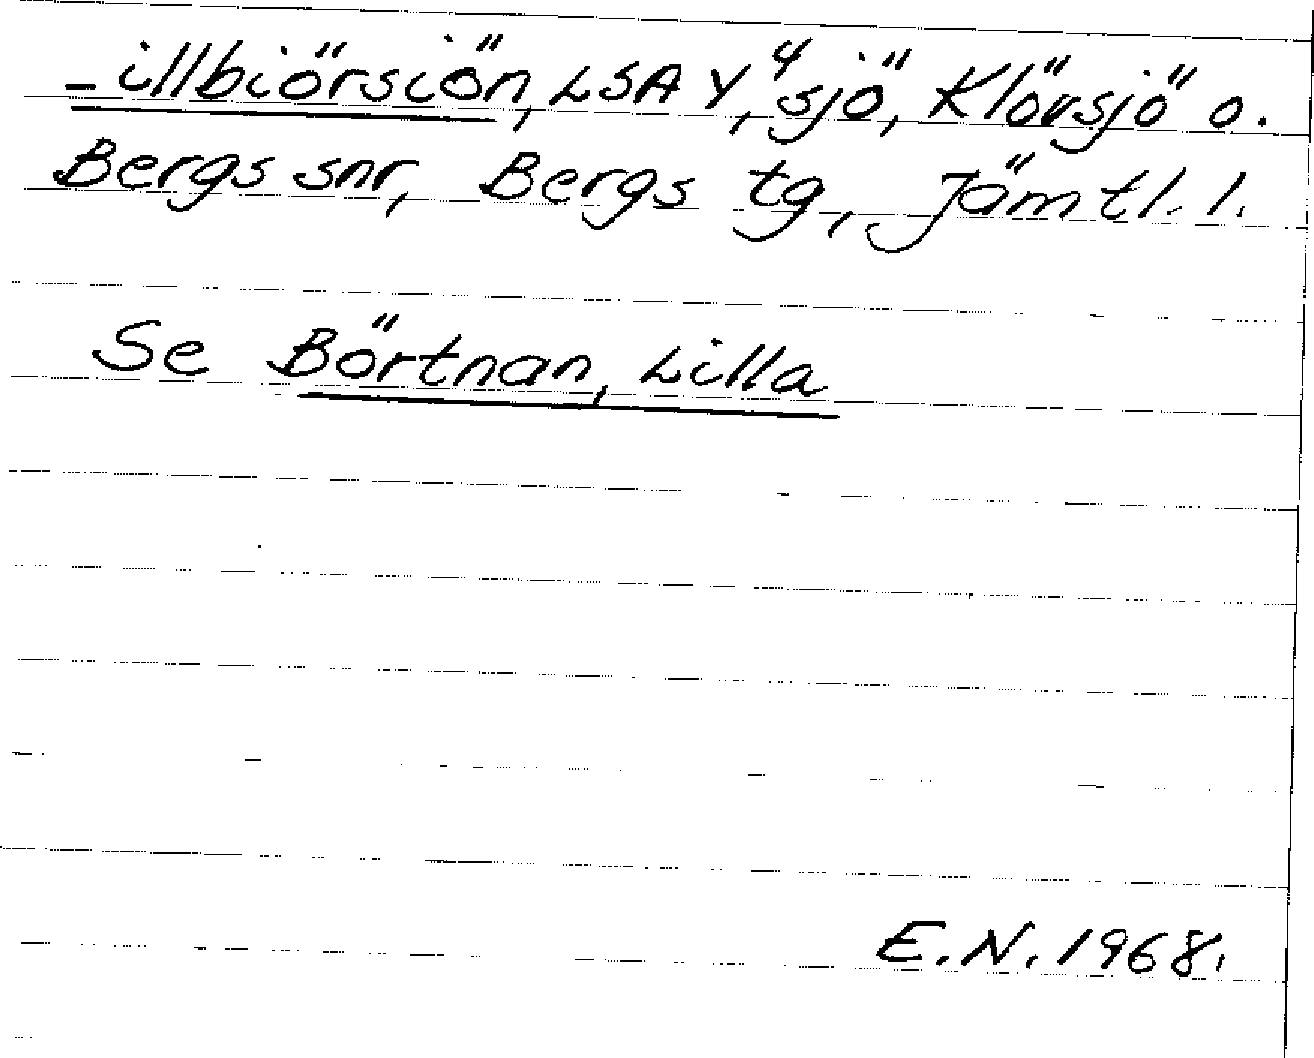 -illbiörsiön, LSA Y⁴, sjö, Klövsjö o.
Bergs snr, Bergs tg, Jämtl. l.
Se Börtnan, Lilla
E.N. 1968.